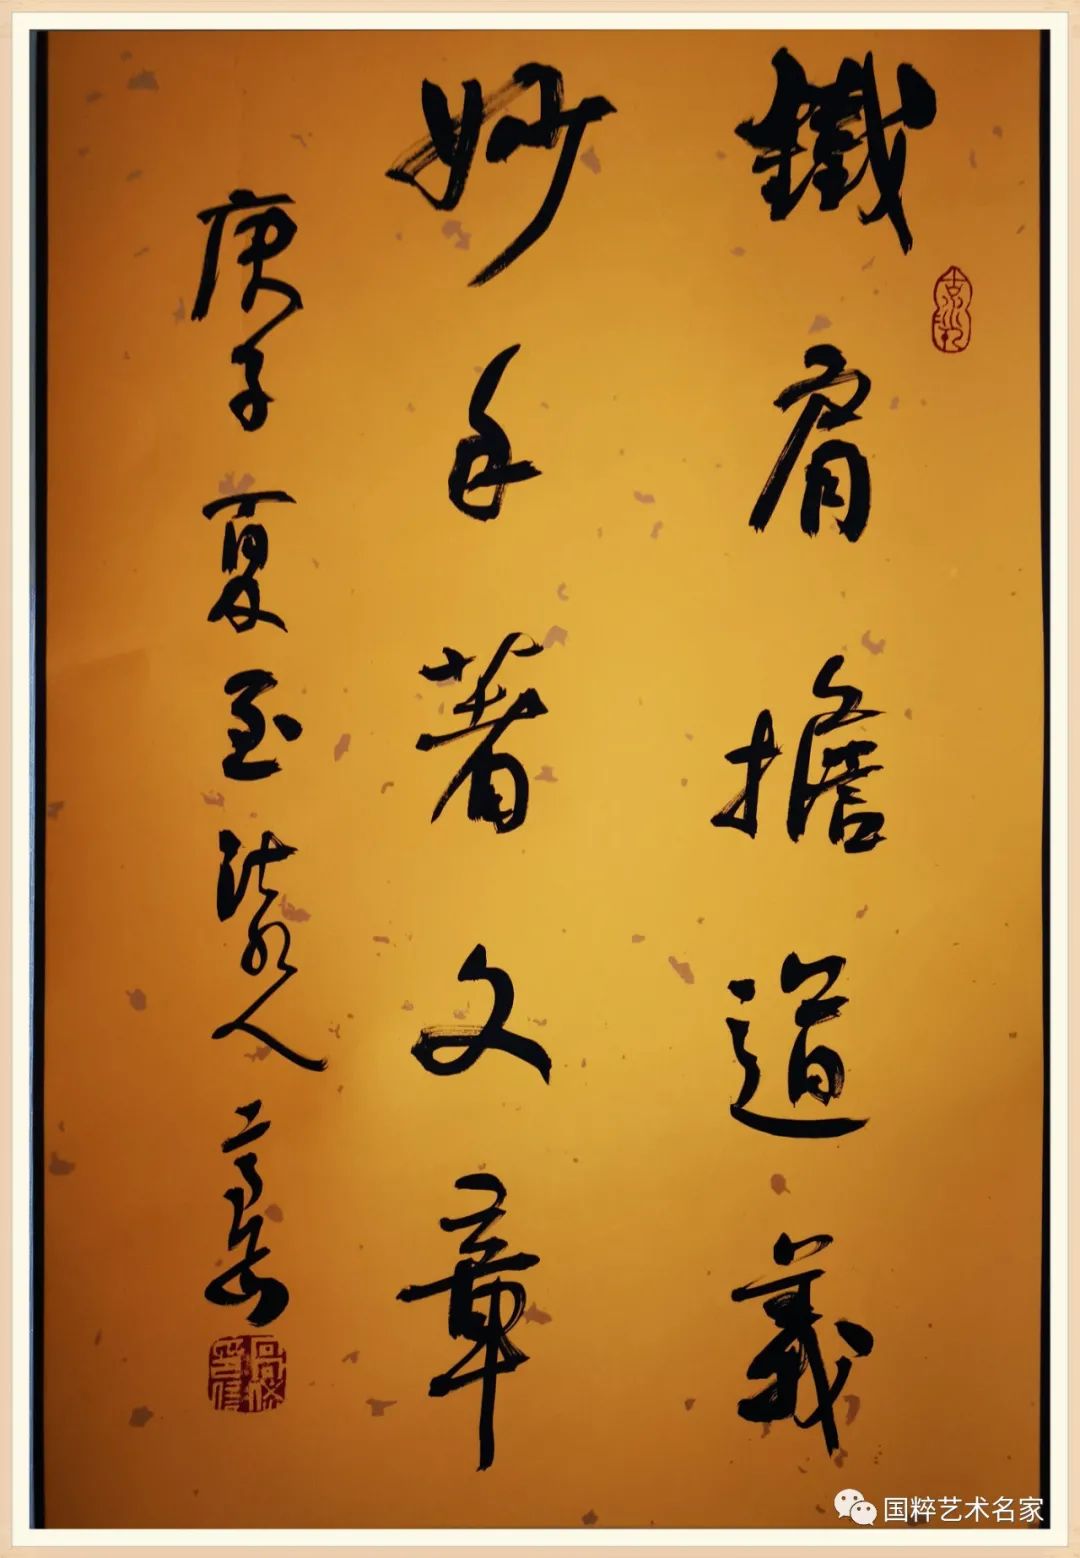 鐵肩擔道義
妙手著文章
庚子夏至
国粹艺术名家